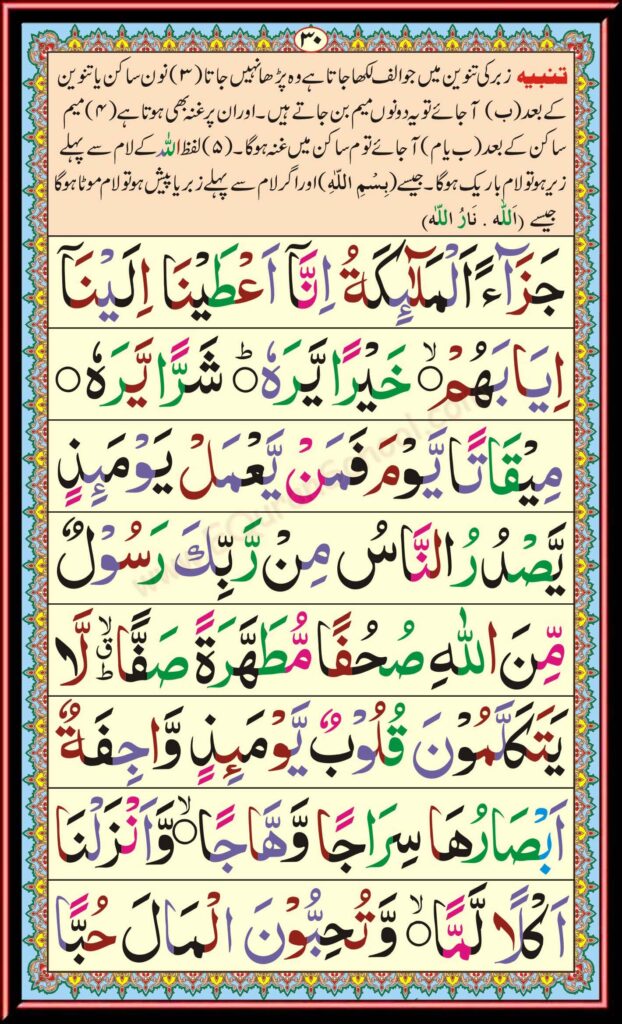 ٣٠
تنبیہ زبر کی تنوین میں جو الف لکھا جاتا ہے وہ پڑھا نہیں جاتا (٣) نون ساکن یا تنوین
کے بعد (ب) آ جائے تو یہ دونوں میم بن جاتے ہیں۔ اور ان پر غنہ بھی ہوتا ہے (۴) میم
ساکن کے بعد (ب یا م) آ جائے تو م ساکن میں غنہ ہوگا۔ (۵) لفظ اللہ کے لام سے پہلے
زیر ہو تو لام باریک ہوگا۔ جیسے (بِسْمِ اللّٰهِ) اور اگر لام سے پہلے زبر یا پیش ہو تو لام موٹا ہوگا
جیسے (اَللّٰه . نَارُ اللّٰه)
جَزَآءً اَلْمَلٰٓئِكَةُ اِنَّآ اَعْطَيْنَا اِلَيْنَآ
اِيَابَهُمْ ۙ خَيْرًا يَّرَهٗ ؕ شَرًّا يَّرَهٗ ○
مِيْقَاتًا يَّوْمَ فَمَنْ يَّعْمَلْ يَوْمَئِذٍ
يَّصْدُرُ النَّاسُ مِنْ رَّبِّكَ رَسُوْلٌ
مِّنَ اللّٰهِ صُحُفًا مُّطَهَّرَةً صَفًّا ۙؕق لَّا
يَتَكَلَّمُوْنَ قُلُوْبٌ يَّوْمَئِذٍ وَّاجِفَةٌ
اَبْصَارُهَا سِرَاجًا وَّهَّاجًا ۙ وَّاَنْزَلْنَا
اَكْلًا لَّمًّا ۙ وَّتُحِبُّوْنَ الْمَالَ حُبًّا